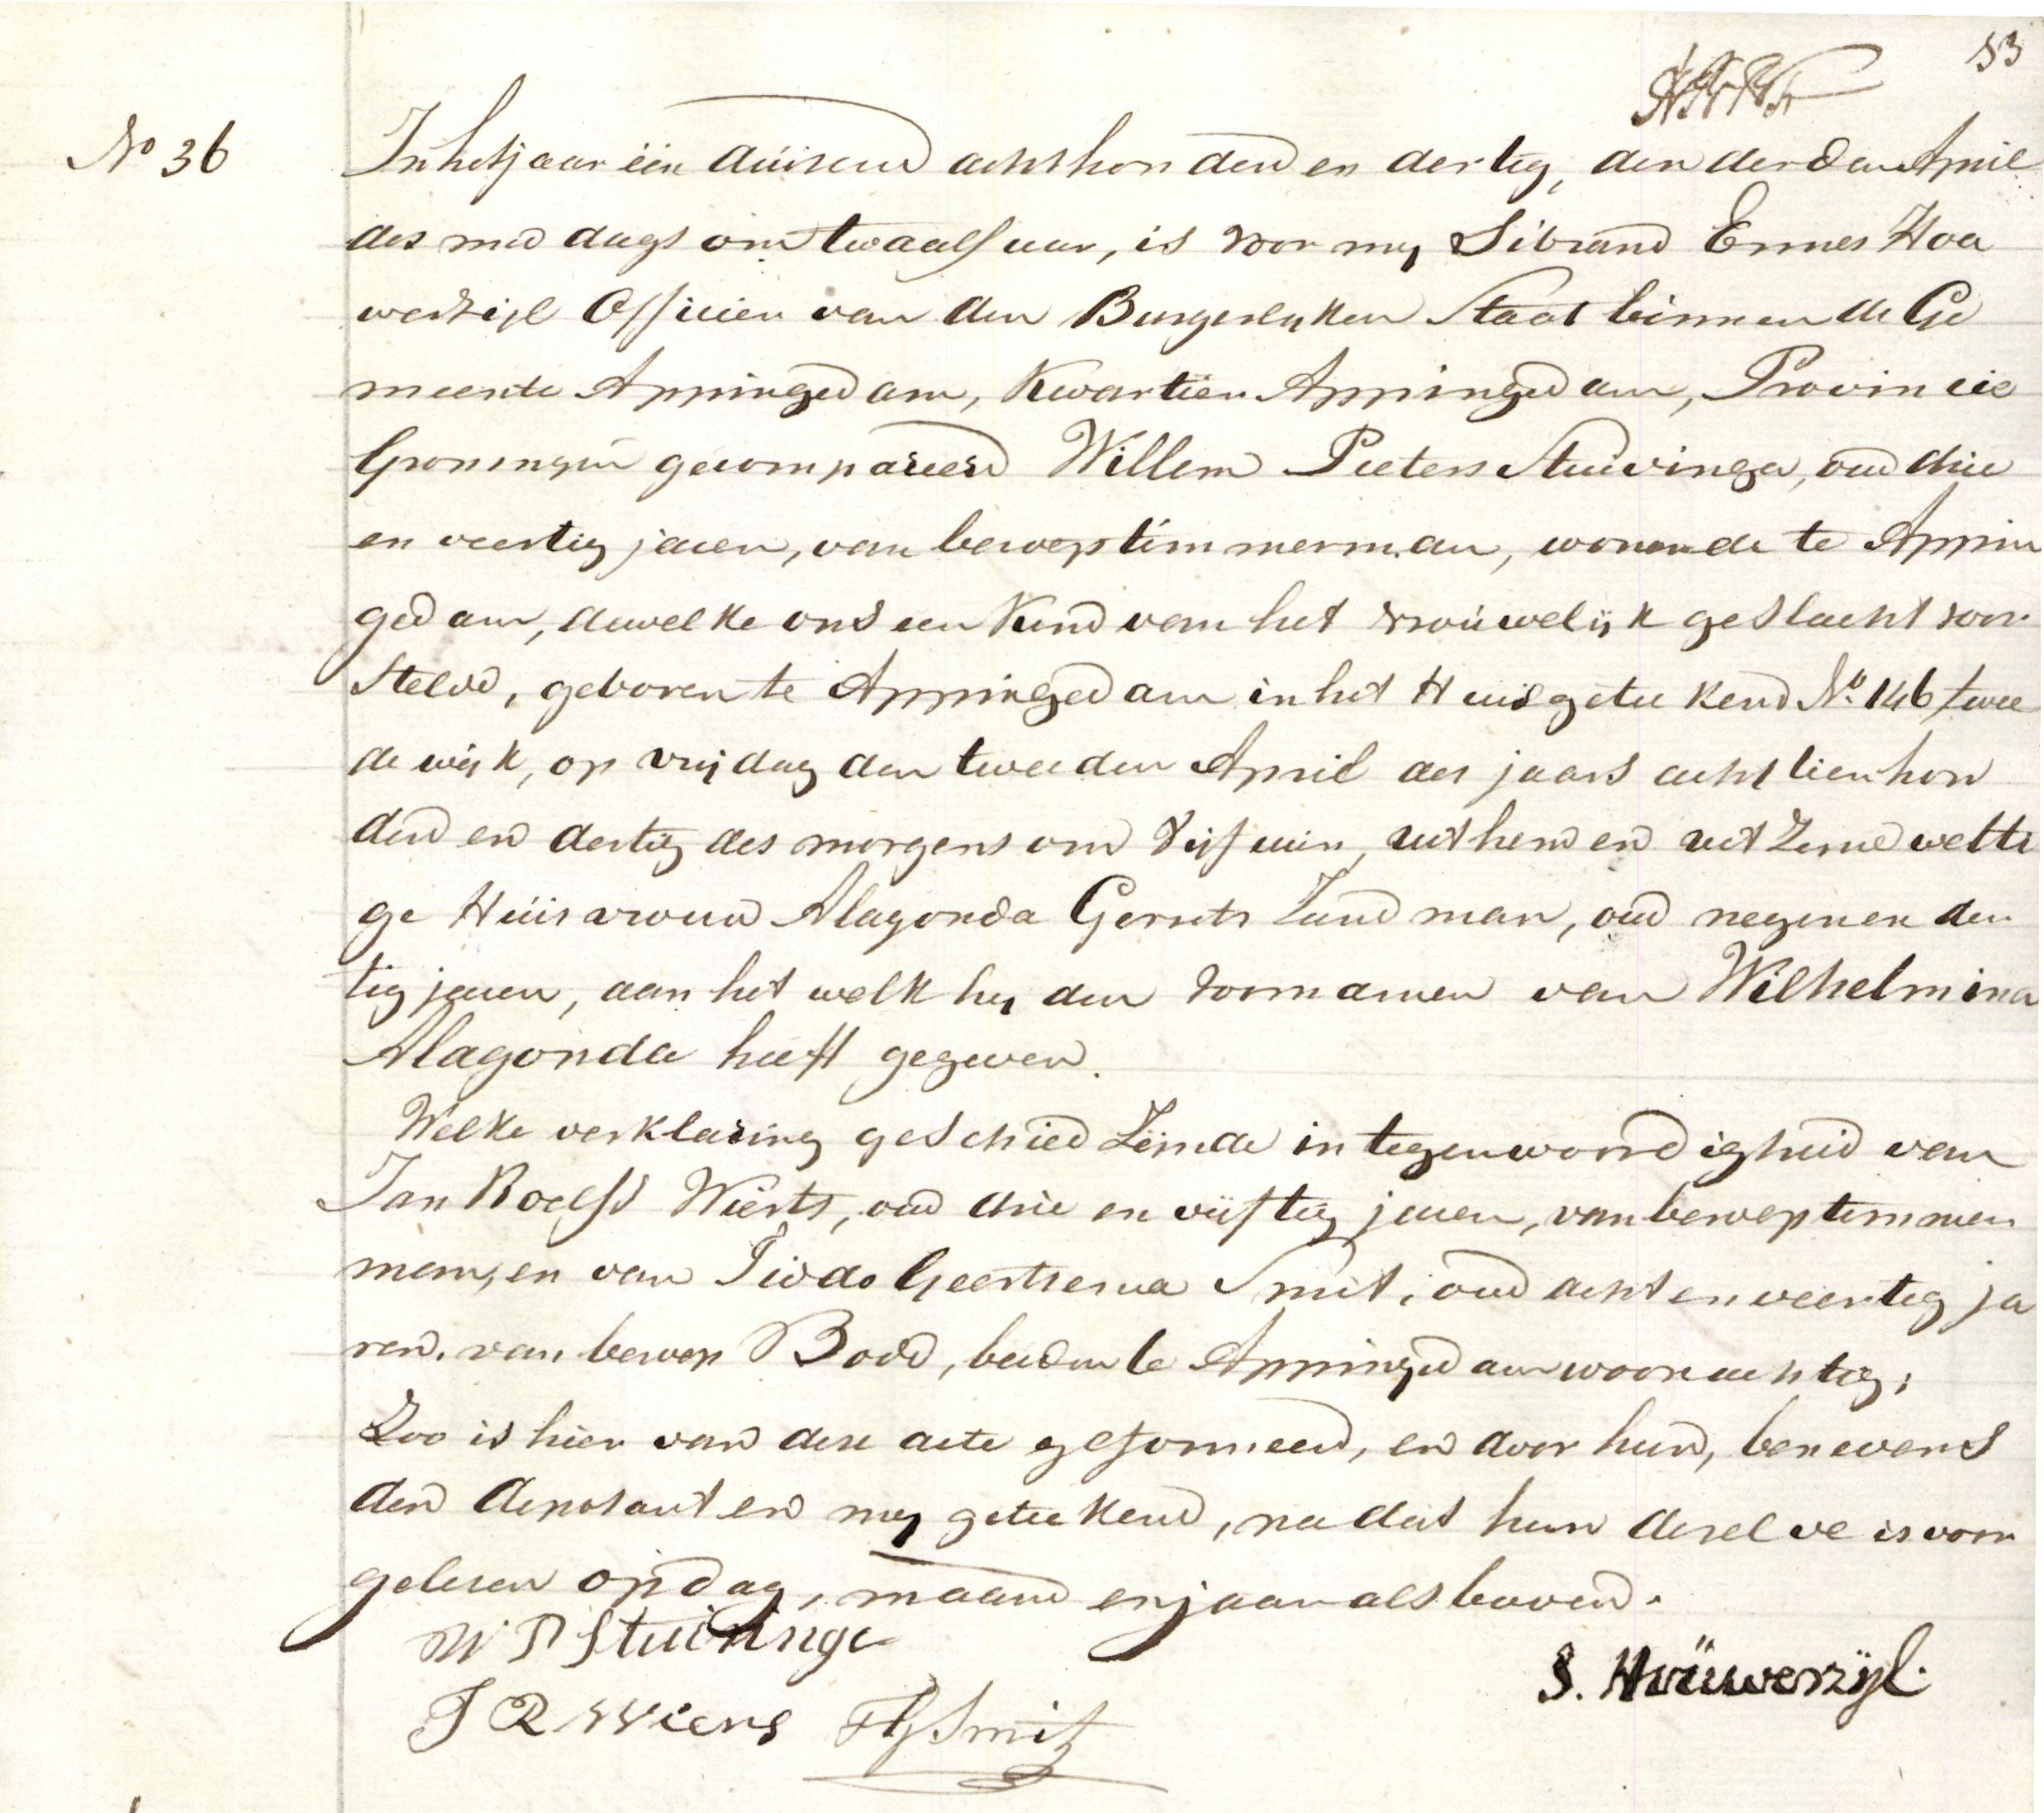 53
No 36
In het jaar één duisend achthonderd en dertig, den derden April
des middags om twaalf uur, is voor my Sibrand Ennes Hoü
werzijl Officier van den Burgerlyken Staat binnen de Ge
meente Appingedam, Kwartier Appingedam, Provincie
Groningen gecompareerd Willem Pieters Stuivinga, oud drie
en veertig jaren, van beroep timmerman, wonende te Appin
gedam, dewelke ons een Kind van het vrouwelijk geslacht voor
steld, geboren te Appingedam in het Huis geteekend No. 146 twee
de wijk, op vrijdag den tweeden April des jaars achttienhon
derd en dertig des morgens om vijf uur, uit hem en uit Zijne wetti
ge Huisvrouw Alagonda Gerrits Zand man, oud negen en der
tig jaren, aan het welk hy den voornamen van Wilhelmina
Alagonda heeft gegeven.
Welke verklaring geschied Zijnde in tegenwoordigheid van
Jan Roelfs Wierts, oud drie en vijftig jaren, van beroep timmer
man, en van Fiddo Geertsema Smit, oud acht en veertig ja
ren, van beroep Bode, beiden te Appingedam woonachtig;
Zoo is hier van dese acte geformeerd, en door hun, benevens
den deposant en my geteekend, na dat hun deselve is voor
gelesen op dag, maand en jaar als boven.
W P Stuivinga
S. Hoüwerzijl.
J R Wiers FG Smit